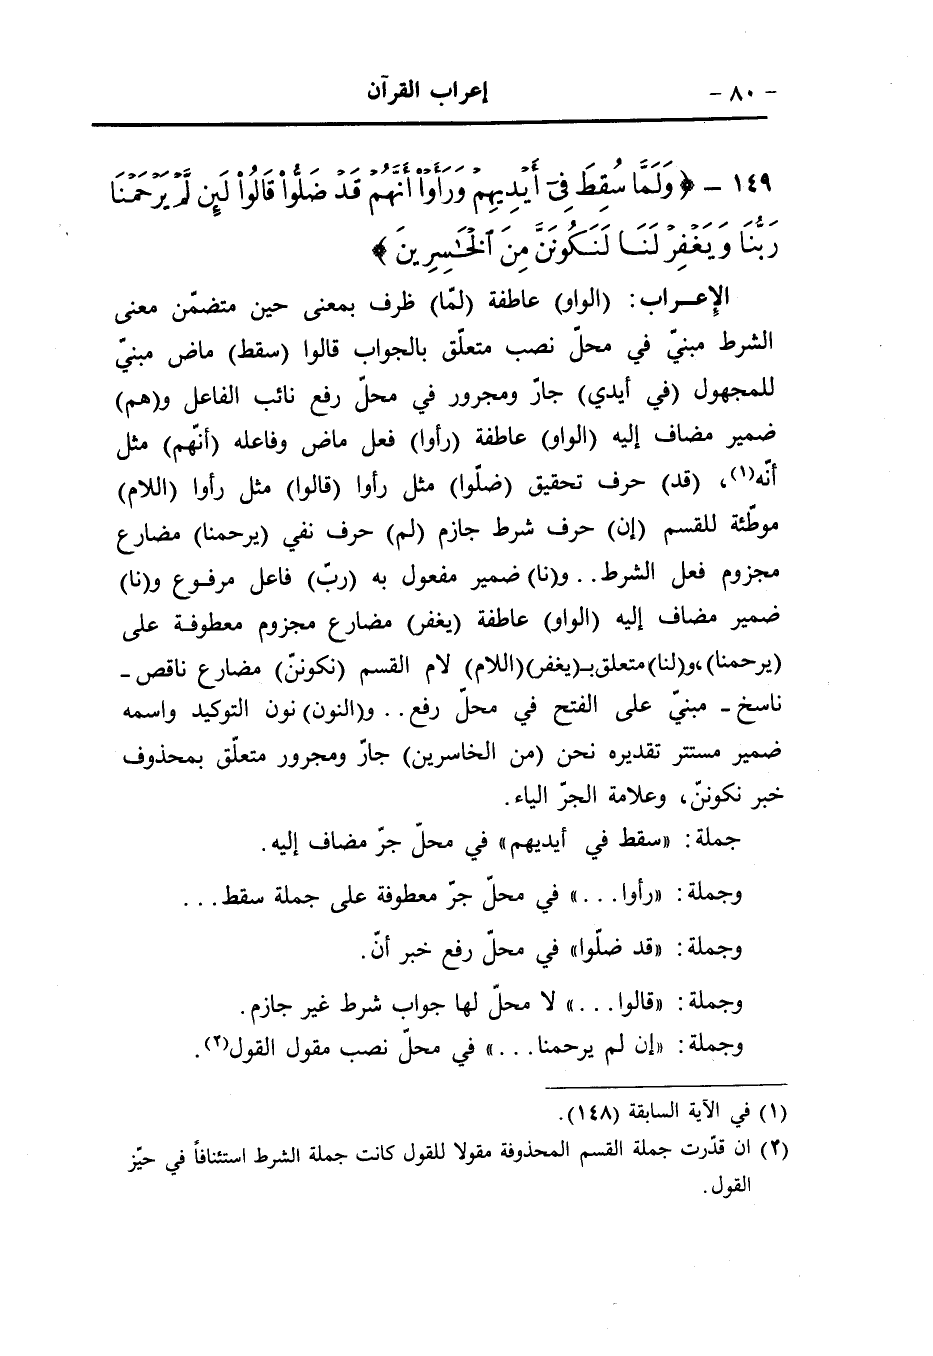 - ٨٠ - إعراب القرآن
١٤٩ - ﴿ وَلَمَّا سُقِطَ فِىٓ أَيْدِيهِمْ وَرَأَوْا۟ أَنَّهُمْ قَدْ ضَلُّوا۟ قَالُوا۟ لَئِن لَّمْ يَرْحَمْنَا
رَبُّنَا وَيَغْفِرْ لَنَا لَنَكُونَنَّ مِنَ ٱلْخَٰسِرِينَ ﴾
الإعراب: (الواو) عاطفة (لمّا) ظرف بمعنى حين متضمّن معنى
الشرط مبنيّ في محلّ نصب متعلّق بالجواب قالوا (سقط) ماض مبنيّ
للمجهول (في أيدي) جارّ ومجرور في محلّ رفع نائب الفاعل و(هم)
ضمير مضاف إليه (الواو) عاطفة (رأوا) فعل ماض وفاعله (أنّهم) مثل
أنّه(١)، (قد) حرف تحقيق (ضلّوا) مثل رأوا (قالوا) مثل رأوا (اللام)
موطّئة للقسم (إن) حرف شرط جازم (لم) حرف نفي (يرحمنا) مضارع
مجزوم فعل الشرط.. و(نا) ضمير مفعول به (ربّ) فاعل مرفوع و(نا)
ضمير مضاف إليه (الواو) عاطفة (يغفر) مضارع مجزوم معطوفة على
(يرحمنا)،و(لنا)متعلق بـ(يغفر)(اللام) لام القسم (نكوننّ) مضارع ناقص -
ناسخ - مبنيّ على الفتح في محلّ رفع.. و(النون) نون التوكيد واسمه
ضمير مستتر تقديره نحن (من الخاسرين) جارّ ومجرور متعلّق بمحذوف
خبر نكوننّ، وعلامة الجرّ الياء.
جملة: «سقط في أيديهم» في محلّ جرّ مضاف إليه.
وجملة: «رأوا...» في محلّ جرّ معطوفة على جملة سقط...
وجملة: «قد ضلّوا» في محلّ رفع خبر أنّ.
وجملة: «قالوا...» لا محلّ لها جواب شرط غير جازم.
وجملة: «إن لم يرحمنا...» في محلّ نصب مقول القول(٢).
(١) في الآية السابقة (١٤٨).
(٢) ان قدّرت جملة القسم المحذوفة مقولا للقول كانت جملة الشرط استئنافاً في حيّز
القول.